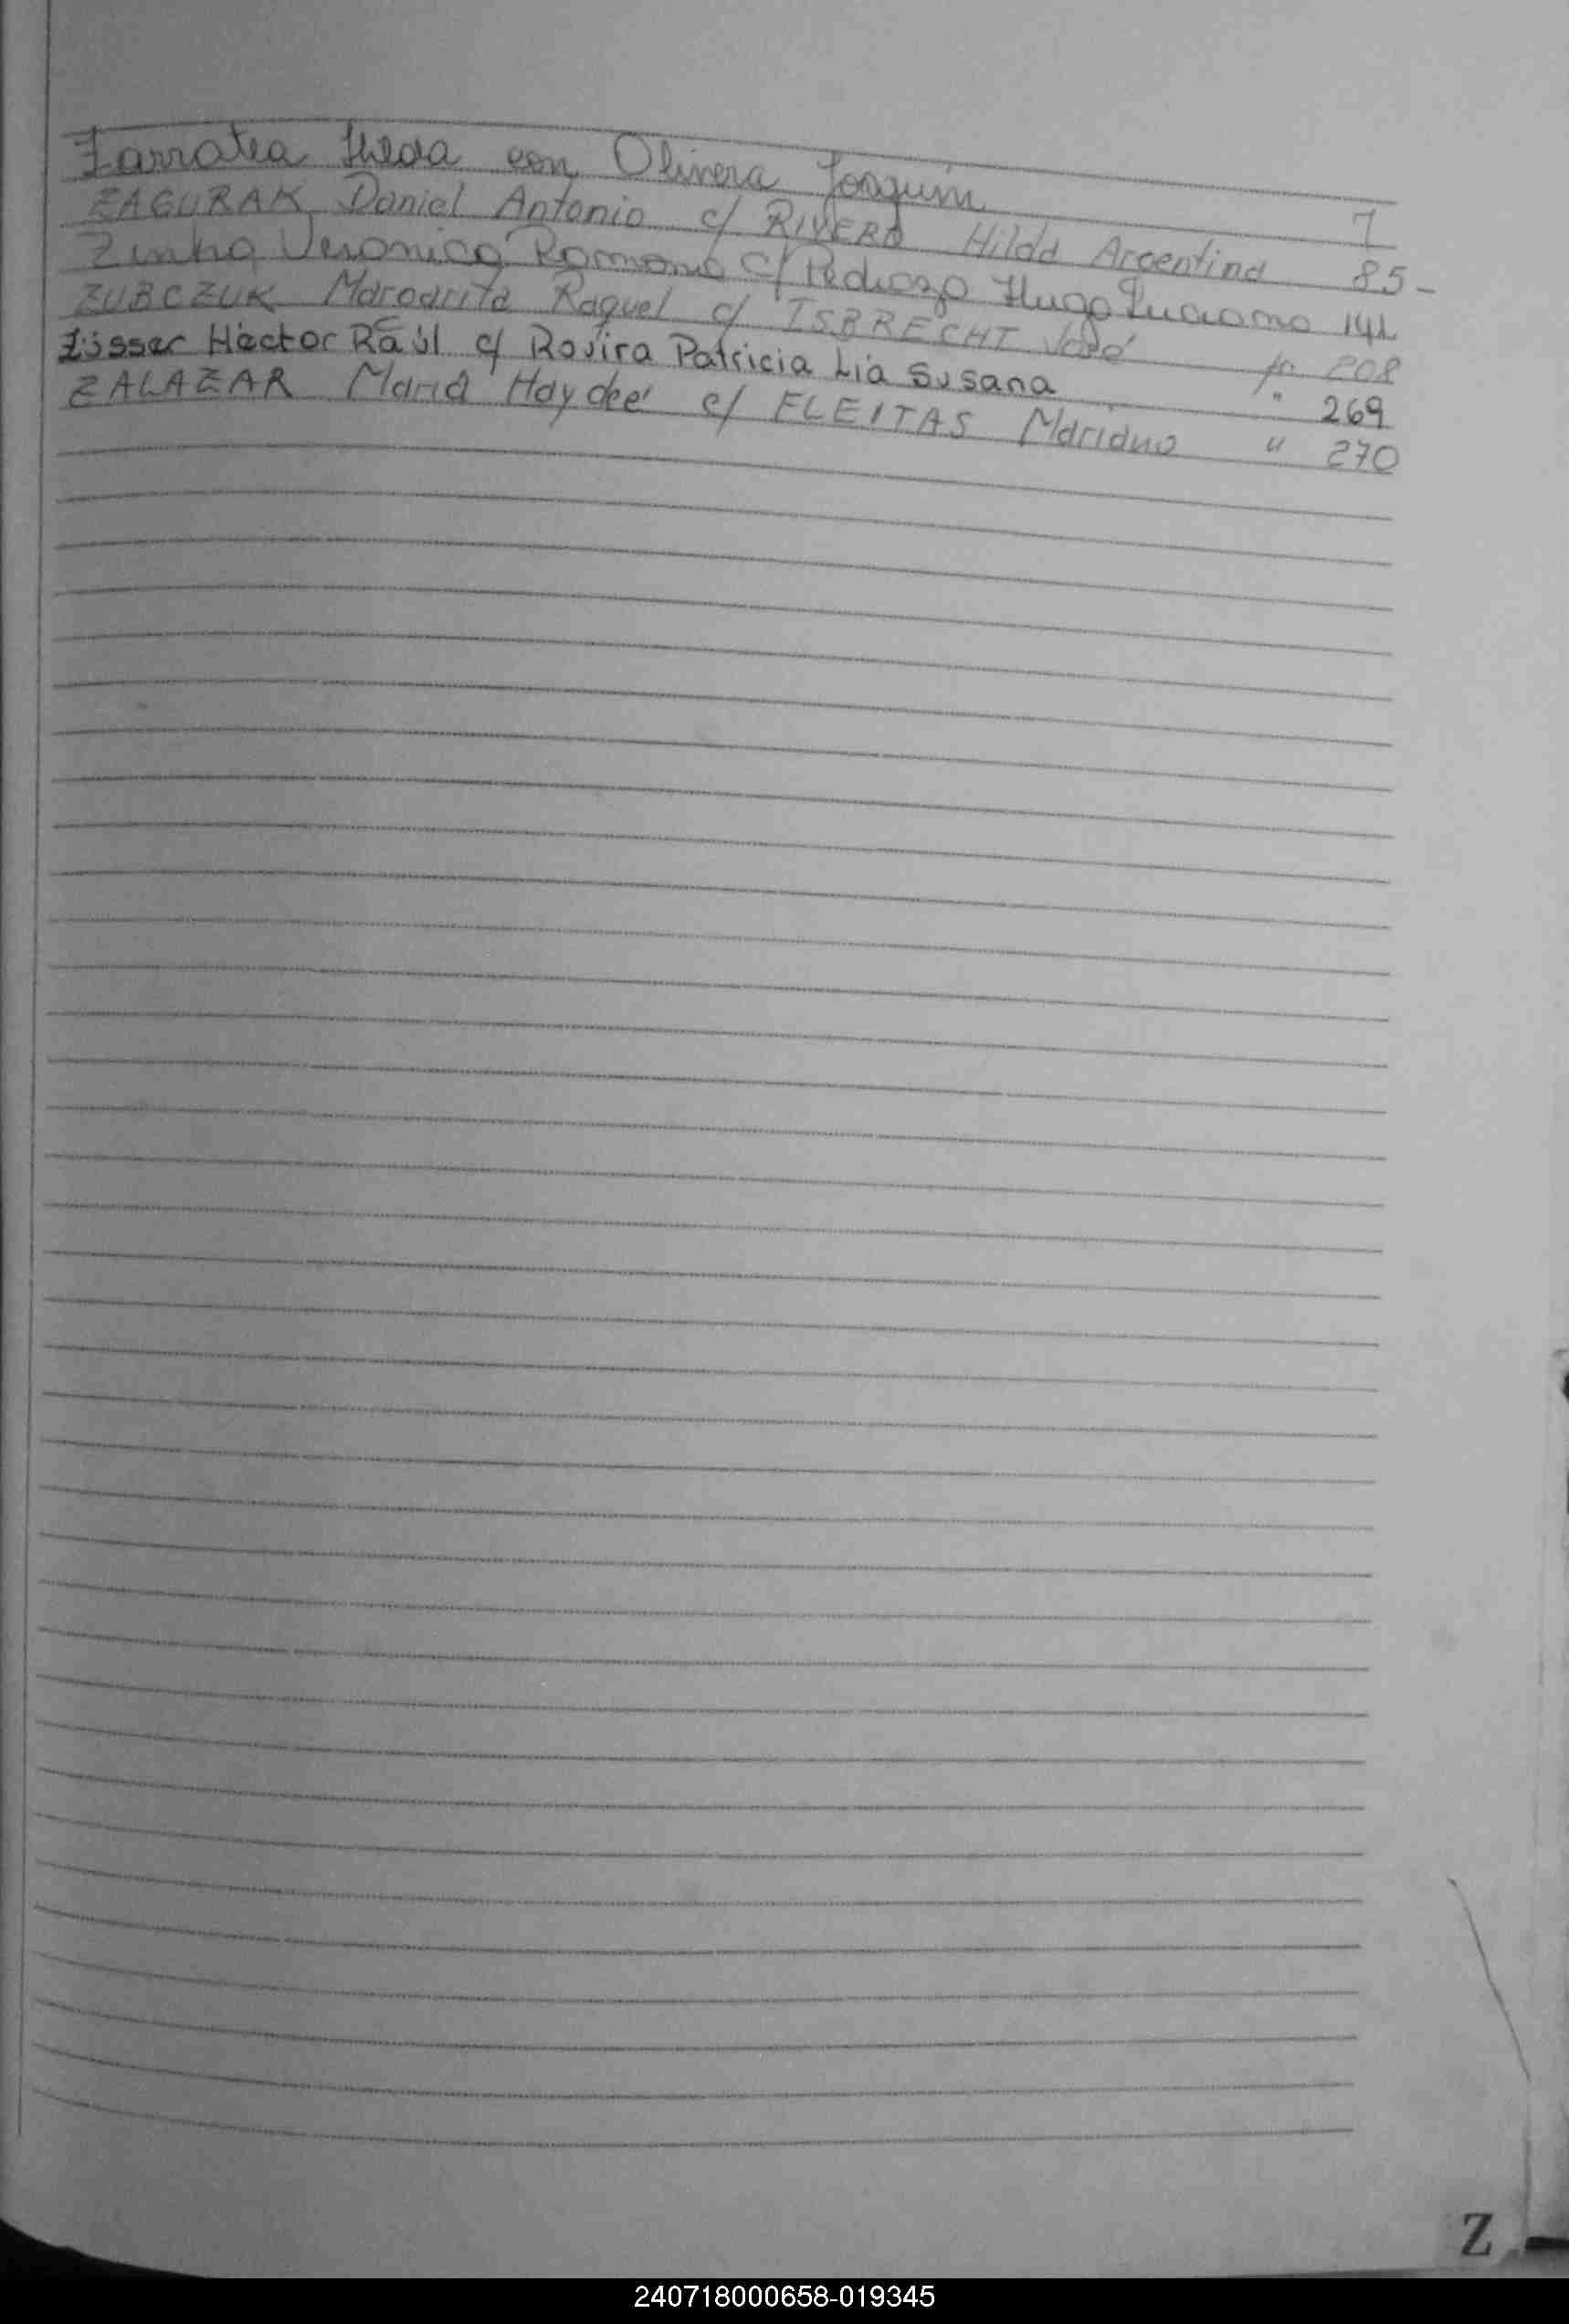 Zarratea Hilda con Olivera Joaquin 7
ZAGURAK Daniel Antonio c/ RIVERO Hilda Argentina 85-
Zinko Veronica Ramona c/ Pedrozo Hugo Luciano 141
ZUBCZUK Margarita Raquel c/ ISBRECHT José fº 208
Züsser Héctor Raúl c/ Rovira Patricia Lia Susana " 269
ZALAZAR María Haydeé c/ FLEITAS Mariano " 270
Z
240718000658-019345